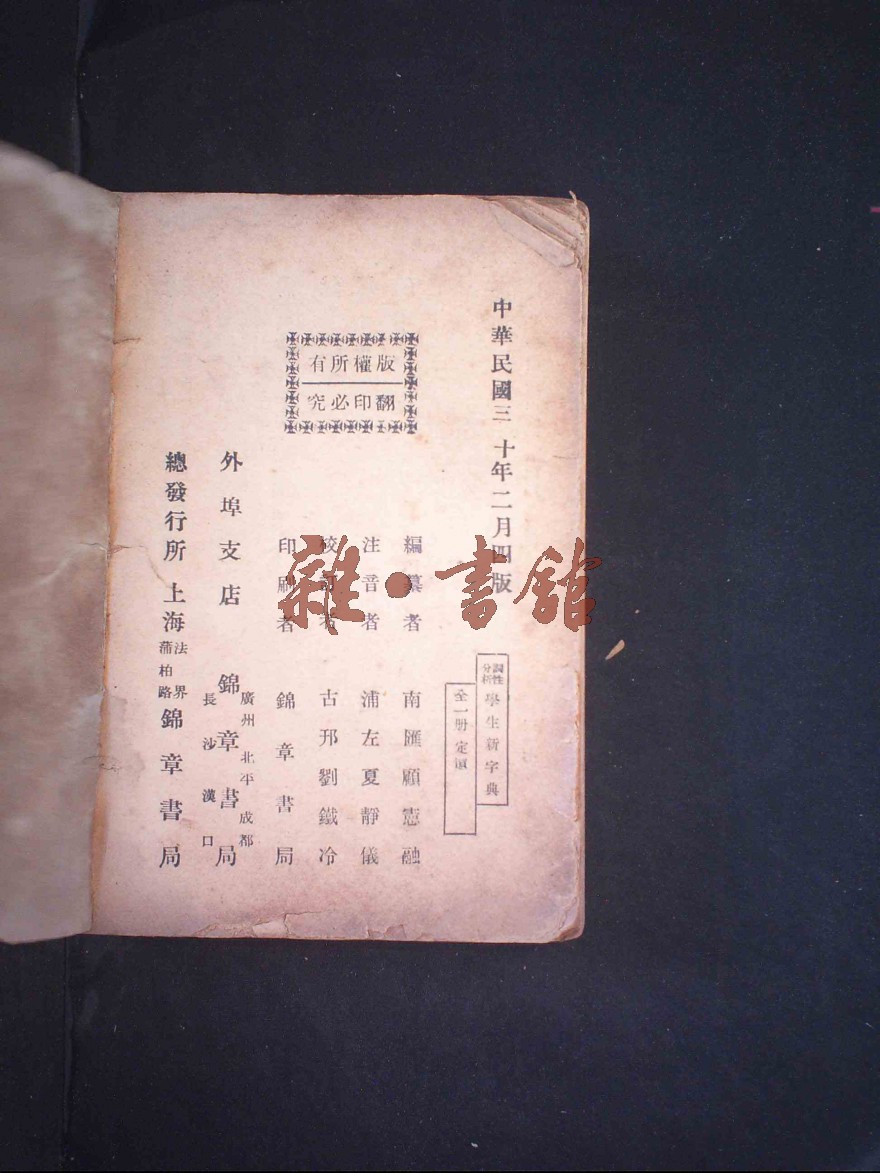 中華民國三十年二月四版
詞性分析 學生新字典
全一册 定價
版權所有
翻印必究
編纂者 南匯顧憲融
注音者 浦左夏靜儀
校訂者 古邘劉鐵冷
印刷者 錦章書局
外埠支店 錦章書局 廣州 北平 成都 長沙 漢口
總發行所 上海法界蒲柏路 錦章書局
雜·書館